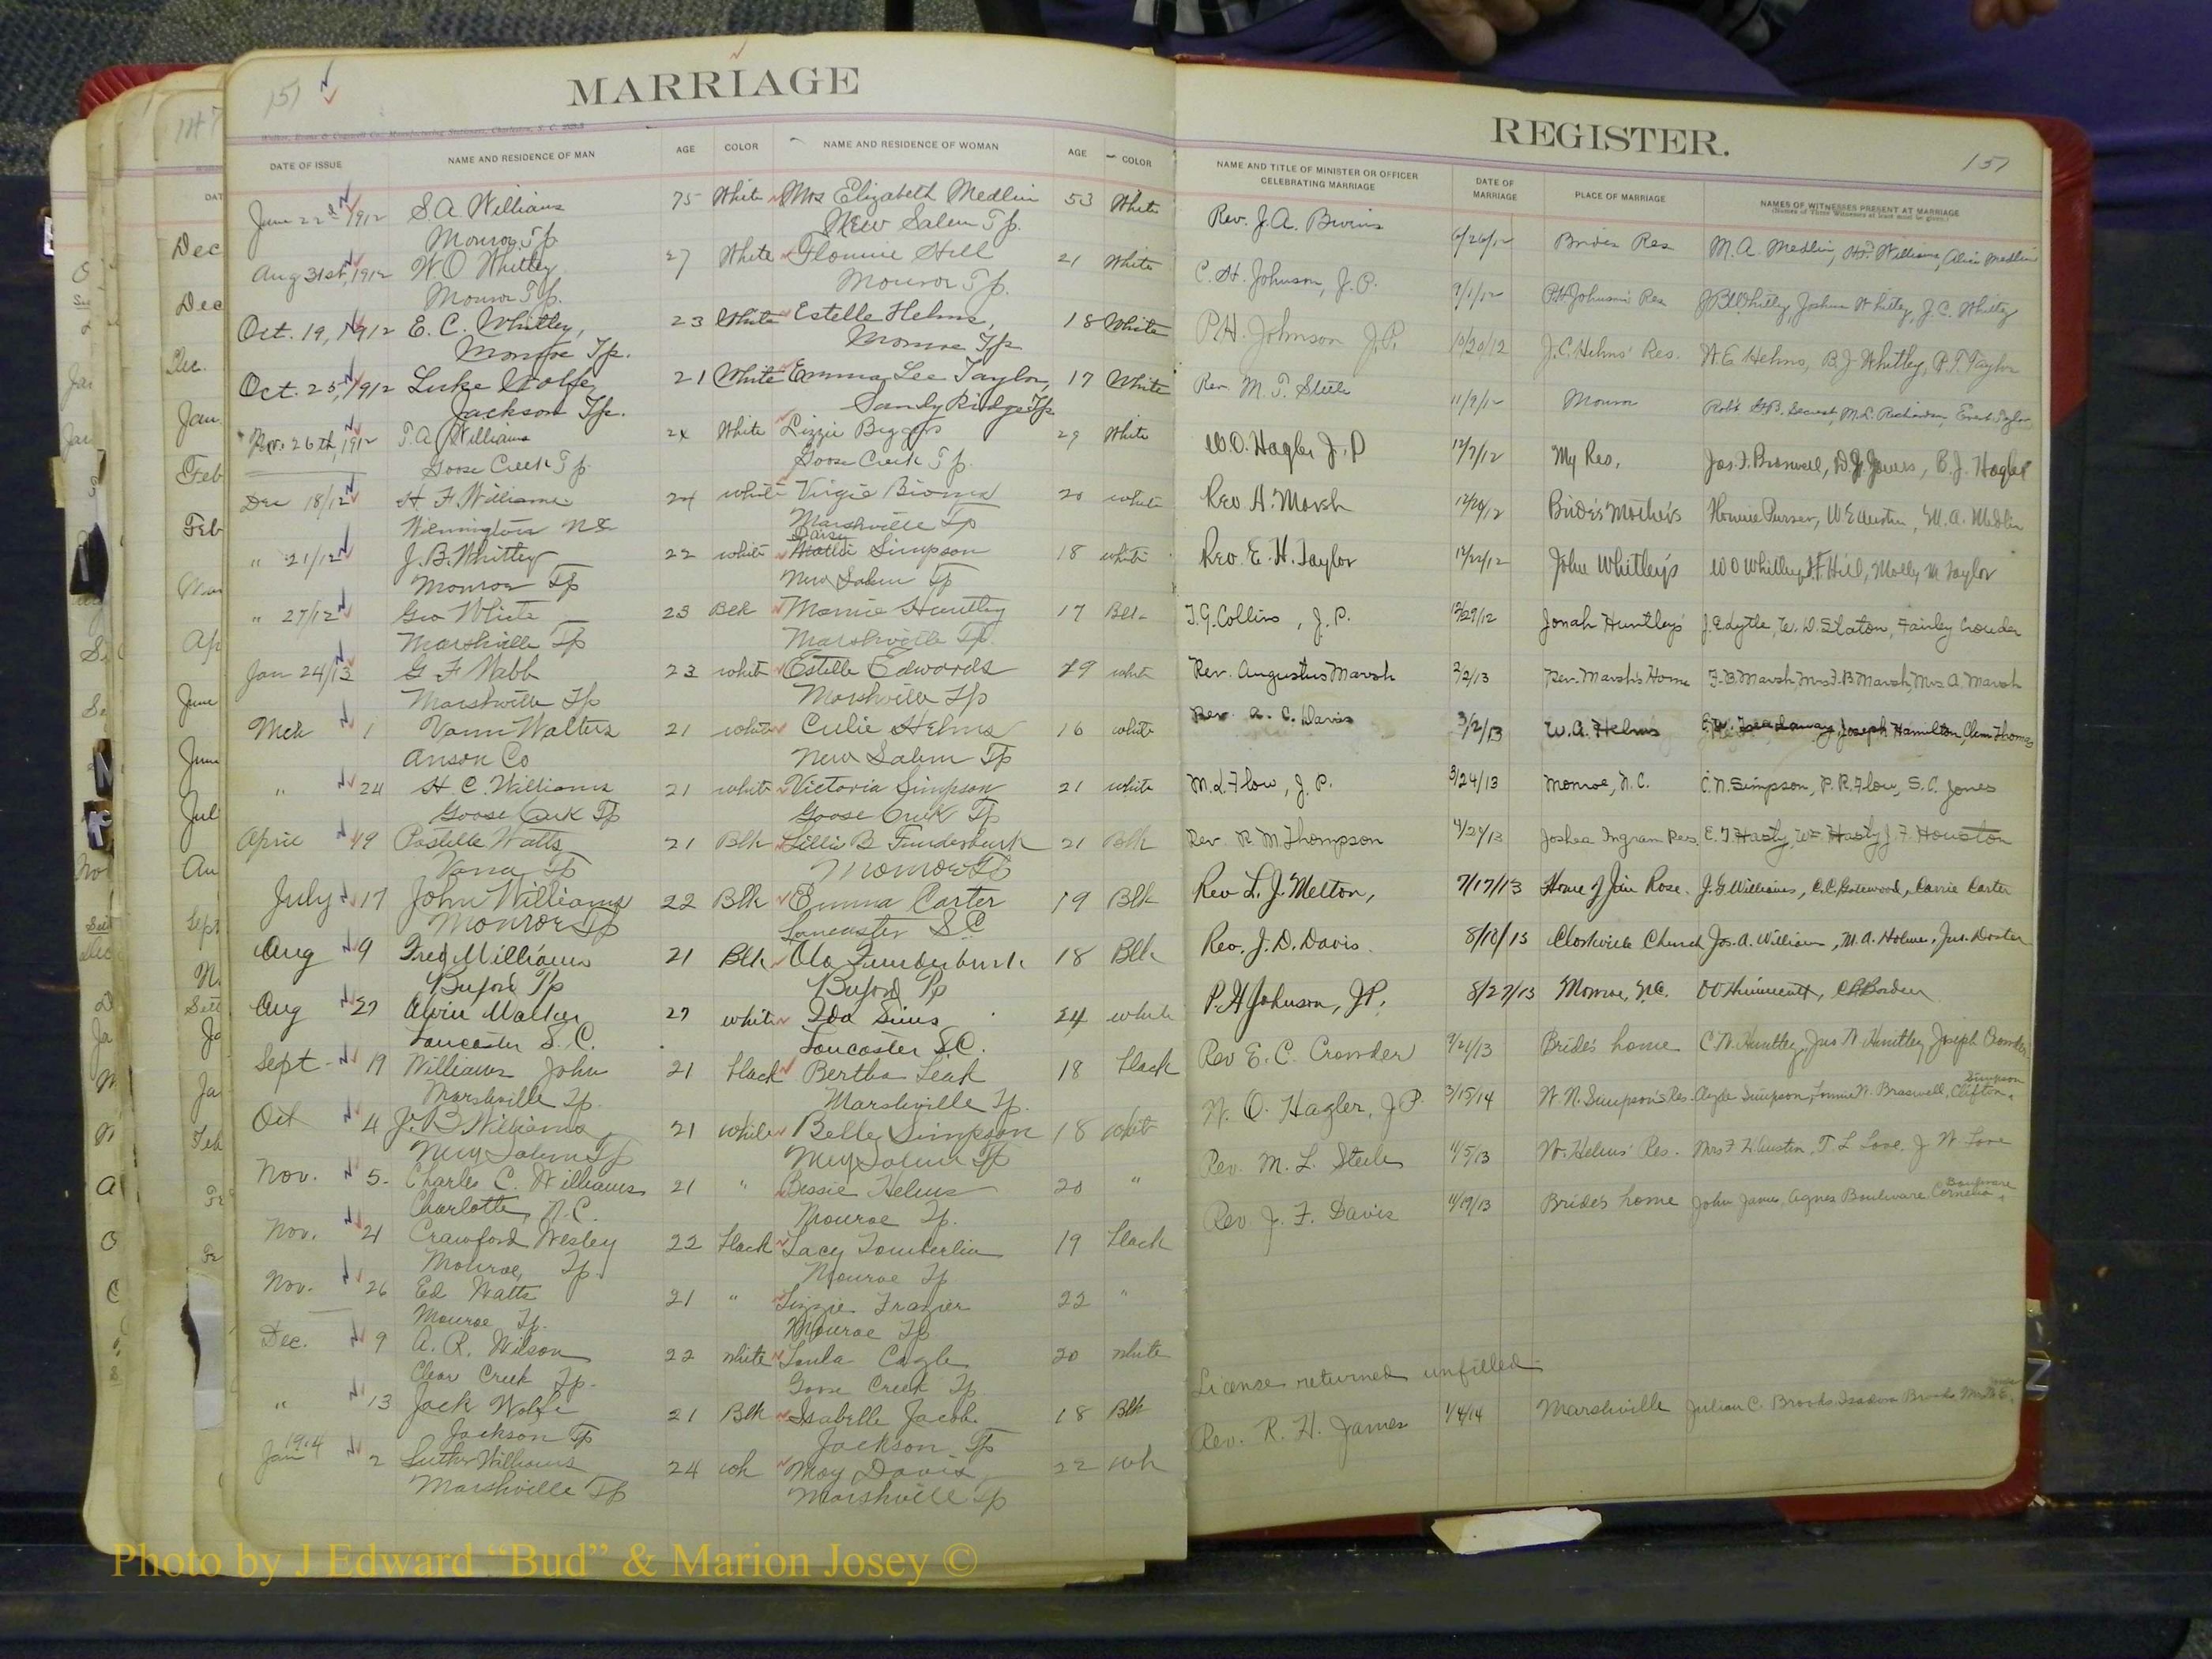 151
MARRIAGE
DATE OF ISSUE NAME AND RESIDENCE OF MAN AGE COLOR NAME AND RESIDENCE OF WOMAN AGE COLOR
June 22d 1912 S.A. Williams 75 White Mrs Elizabeth Medlin 53 White
Monroe Tp. New Salem Tp.
Aug 31st, 1912 W O Whitley 27 White Hill 21 White
Monroe Tp. Monroe Tp.
Oct. 19, 1912 E. C. Whitley, 23 White Estelle Helms, 18 White
Monroe Tp. Monroe Tp
Oct. 25, 1912 Luke Wolfe, 21 White Emma Lee Taylor, 17 White
Jackson Tp. Sandy Ridge Tp
Nov. 26th, 1912 T.A. Williams 24 White Lizzie Biggers 29 White
Goose Creek Tp. Goose Creek Tp.
Dec 18/12 H. F. Williams 24 white Virgie 20 white
Wilmington NC Marshville Tp
" 21/12 J. B. Whitley 22 white Daisy Simpson 18 white
Monroe Tp New Salem Tp
" 27/12 Geo White 23 Blk Mamie Huntley 17 Blk
Marshville Tp Marshville Tp
Jan 24/13 G F Webb 23 white Estelle Edwards 19 white
Marshville Tp Marshville Tp
Mch 1 Vann Walters 21 white Culie Helms 16 white
Anson Co New Salem Tp
" 24 H. C. Williams 21 white Victoria Simpson 21 white
Goose Creek Tp Goose Creek Tp
April 19 Postelle Watts 21 Blk Lillie B Funderburk 21 Blk
Vance Tp Monroe Tp
July 17 John Williams 22 Blk Emma Carter 19 Blk
Monroe Tp Lancaster SC
Aug 9 Fred Williams 21 Blk Ola Funderburk 18 Blk
Buford Tp Buford Tp
Aug 27 Alvin Walker 27 white Ida Sims 24 white
Lancaster S.C. Lancaster S.C.
Sept 19 Williams John 21 black Bertha Leak 18 black
Marshville Tp. Marshville Tp.
Oct 4 J. B Williams 21 white Belle Simpson 18 white
New Salem Tp New Salem Tp
Nov. 5. Charles C. Williams 21 " Bessie Helms 20 "
Charlotte, N.C. Monroe Tp.
Nov. 21 Crawford Wesley 22 black Lacy Tomberlin 19 black
Monroe, Tp. Monroe Tp
Nov. 26 Ed Watts 21 " Lizzie Frazier 22 "
Monroe Tp. Monroe Tp
Dec. 9 A. R. Wilson 22 white Loula Cagle 20 white
Clear Creek Tp. Goose Creek Tp
" 13 Jack Wolfe 21 Blk Isabelle Jacobs 18 Blk
Jackson Tp Jackson Tp
1914
Jan 2 Luther Williams 24 wh May Davis 22 wh
Marshville Tp Marshville Tp
REGISTER.
151
NAME AND TITLE OF MINISTER OR OFFICER CELEBRATING MARRIAGE DATE OF MARRIAGE PLACE OF MARRIAGE NAMES OF WITNESSES PRESENT AT MARRIAGE
(Names of Three Witnesses at least must be given.)
Rev. J. A. Bivins 6/26/12 Brides Res M. A. Medlin, Williams, Alice Medlin
C. H. Johnson, J.P. 9/1/12 Johnson's Res Whitley, Joshua Whitley, J. C. Whitley
P.H. Johnson J.P. 10/20/12 J.C. Helms' Res. W. E Helms, B.J. Whitley, P. T. Taylor
Rev. M. T. Steele 11/9/12 Monroe M.L. Richardson,
W.O. Hagler J.P 12/7/12 My Res. Jas. F. Braswell, D.J. Jones, B. J. Hagler
Rev A. Marsh 12/20/12 Bride's Mother's Purser, W E Austin, M. A. Medlin
Rev. E. H. Taylor 12/22/12 John Whitley's W O Whitley, Hill, Molly M Taylor
T.G. Collins, J. P. 12/29/12 Jonah Huntley's J. Edytle, W. D. Staton, Fairley Crowder
Rev. Augustus Marsh 2/2/13 Rev. Marsh's Home F. B. Marsh, Mrs F. B Marsh, Mrs A. Marsh
Rev. A. C. Davis 3/2/13 W. A. Helms Joseph Hamilton, Clem Thomas
M. L Flow, J. P. 3/24/13 Monroe, N.C. C. N. Simpson, P. R. Flow, S. C. Jones
Rev. R M Thompson 4/20/13 Joshea Ingram Res. E. T Hasty, Wm Hasty J F Houston
Rev L. J. Melton, 7/17/13 Home of Jim Rose. J. G Williams, C. C. Gatewood, Carrie Carter
Rev. J. D. Davis. 8/10/13 Clarkville Church Jas. A. William, M. A. Holmes, Jno. Doster
P. H Johnson, JP. 8/27/13 Monroe, N.C. Borden
Rev E. C. Crowder 9/21/13 Bride's home C. W. Huntley, Jno W Huntley, Joseph Crowder
W. O. Hagler, J P. 3/15/14 W. N. Simpson's Res. Clyde Simpson, Lonnie N. Braswell, Clifton Simpson
Rev. M. L. Steele 11/5/13 W. Helms' Res. Mrs F. H. Austin, T. L Love, J W Love
Rev J. F. Davis 11/19/13 Bride's home John James, Agnes Boulware Cornelia Boulware
License returned unfilled
Rev. R. H. James 1/4/14 Marshville Julian C. Brooks Isadora Brooks
Photo by J Edward “Bud” & Marion Josey ©